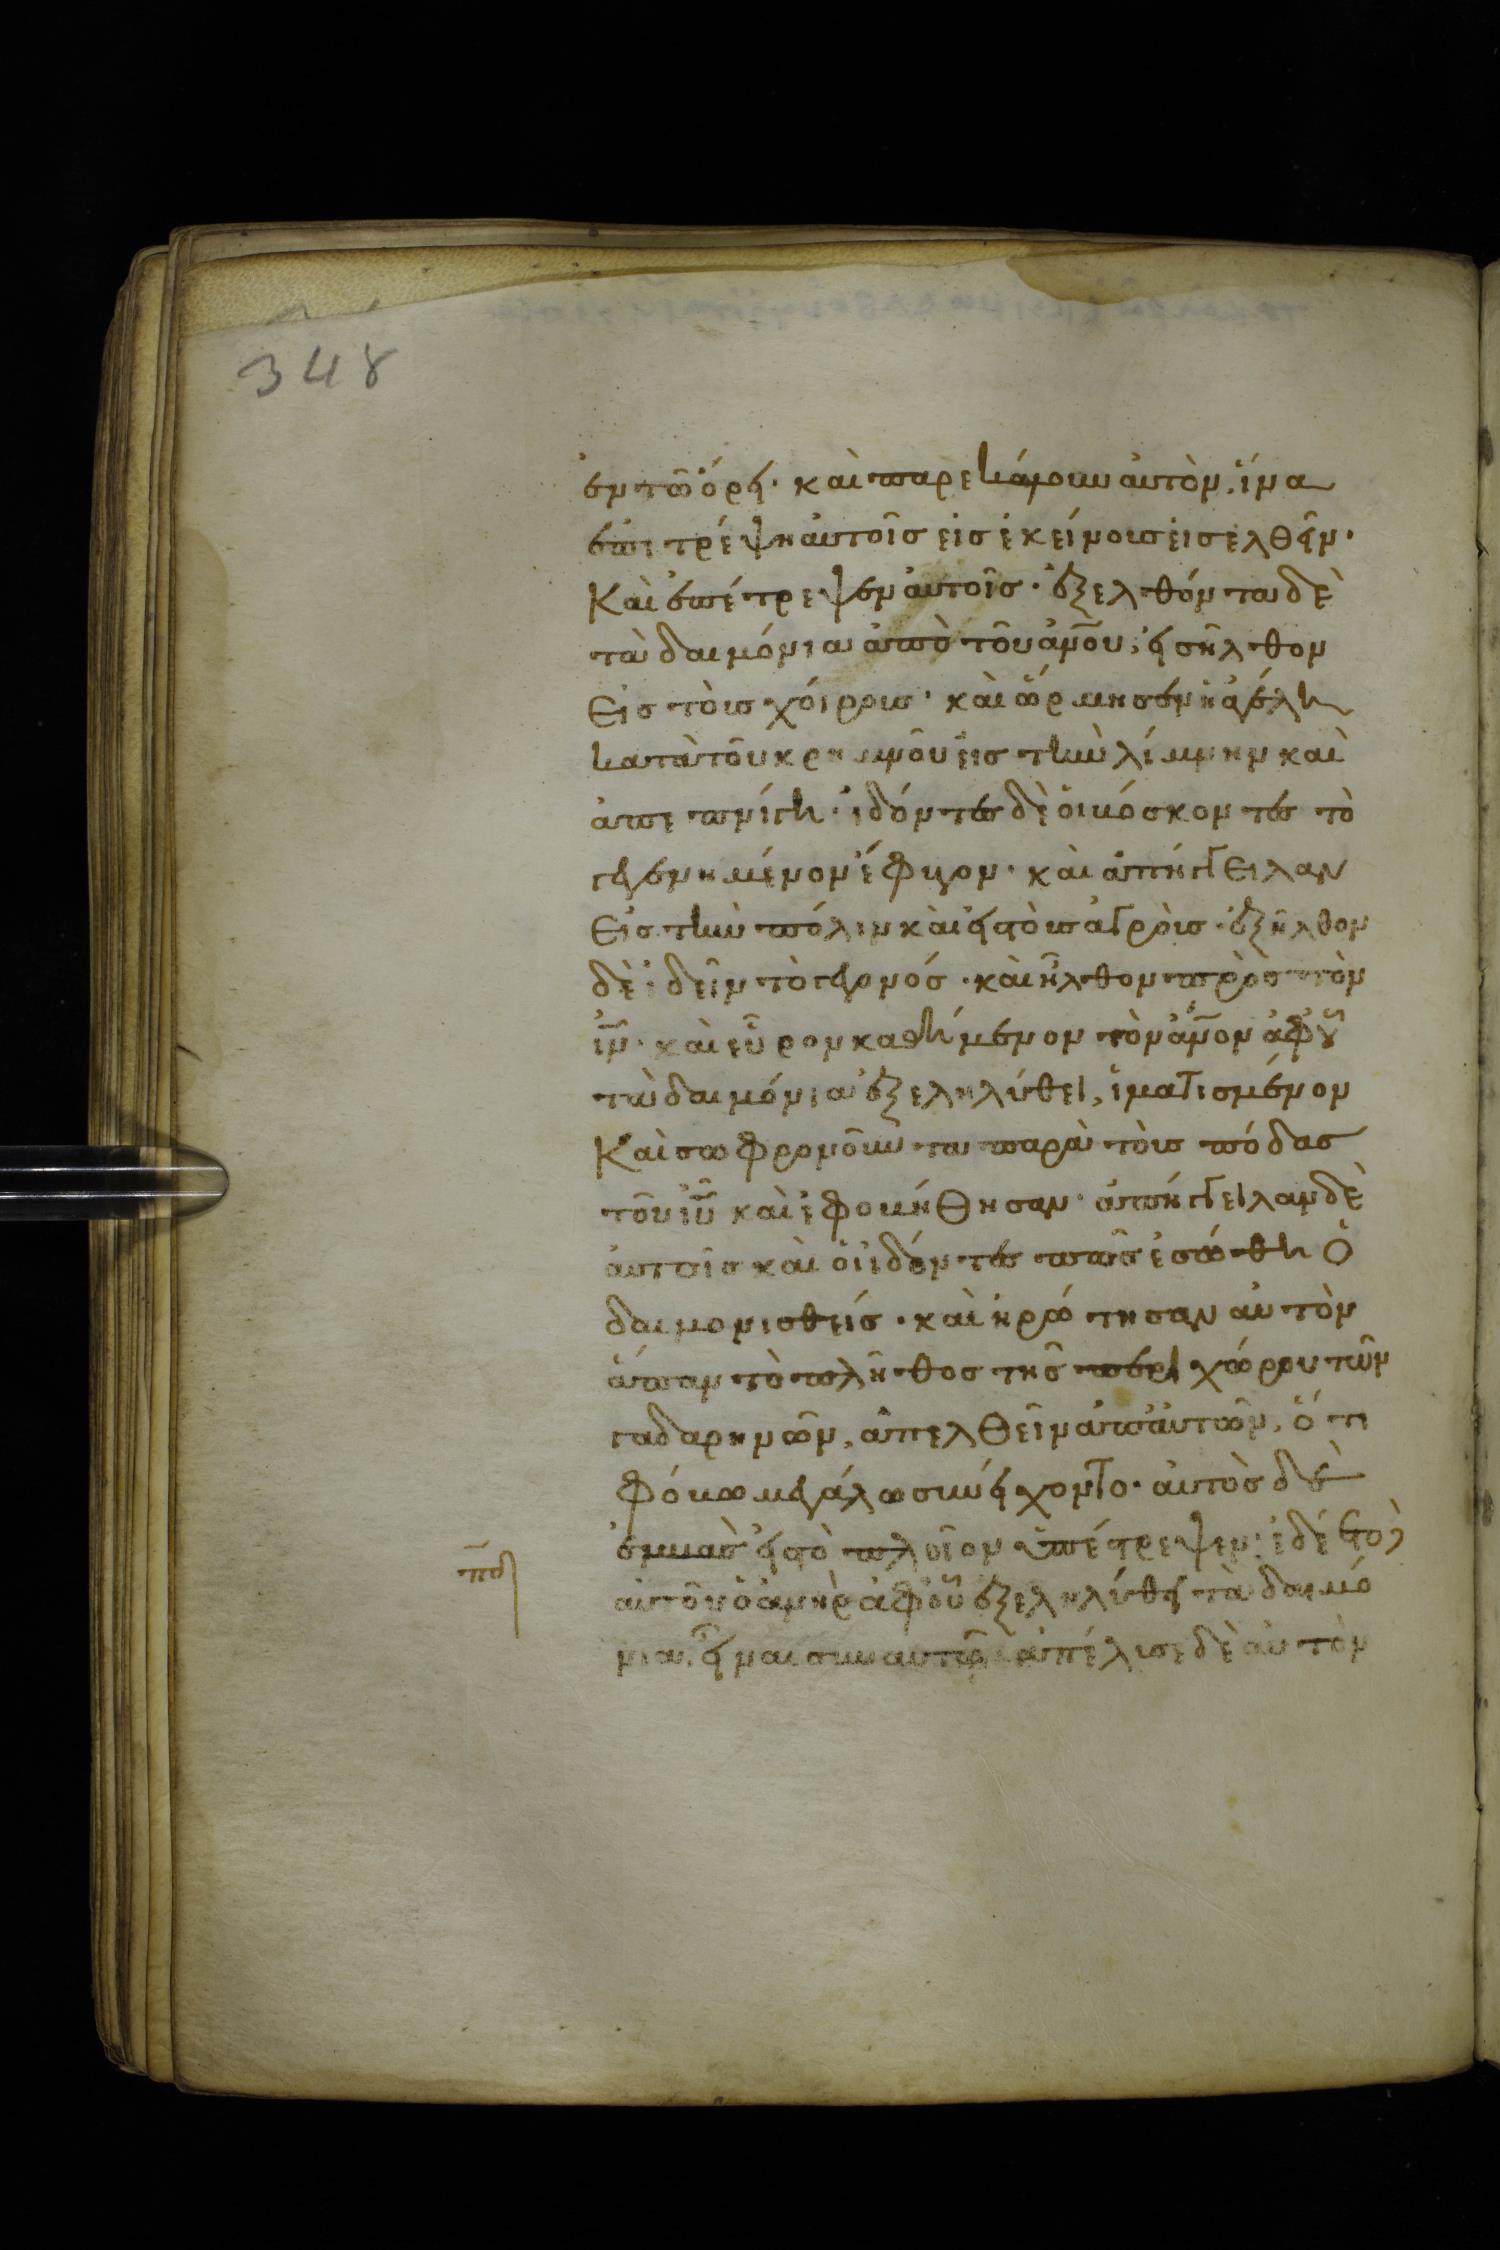 348
ἐν τῶ ὄρει· καὶ παρεκάλουν αὐτὸν, ἵνα
ἐπιτρέψη αὐτοῖς εἰς ἐκείνους εἰσελθεῖν·
Καὶ ἐπέτρεψεν αὐτοῖς· ἐξελθόντα δὲ
τὰ δαιμόνια ἀπὸ τοῦ ἀν̅ου, εἰσῆλθον
Εἰς τοὺς χοίρους· καὶ ὥρμησεν ἡ ἀγέλη
κατὰ τοῦ κρημνοῦ εἰς τὴν λίμνην καὶ
ἀπεπνίγη· ἰδόντες δὲ οἱ βόσκοντες τὸ
γεγενημένον ἔφυγον· καὶ ἀπήγγειλαν
Εἰς τὴν πόλιν καὶ εἰς τοὺς ἀγρούς· ἐξῆλθον
δὲ ἰδεῖν τὸ γεγονός· καὶ ἦλθον πρὸς τὸν
ἰ̅ν· καὶ εὗρον καθήμενον τὸν ἄν̅ον ἀφ' οὗ
τὰ δαιμόνια ἐξεληλύθει, ἱματισμένον
Καὶ σωφρονοῦντα παρὰ τοὺς πόδας
τοῦ ἰ̅υ καὶ ἐφοβήθησαν· ἀπήγγειλαν δὲ
αὐτοῖς καὶ οἱ ἰδόντες πῶς ἐσώθη ὁ
δαιμονισθείς· καὶ ἠρώτησαν αὐτὸν
ἅπαν τὸ πλῆθος τῆς περιχώρου τῶν
γαδαρηνῶν, ἀπελθεῖν ἀπ' αὐτῶν, ὅτι
φόβω μεγάλω συνείχοντο· αὐτὸς δὲ
ἐμβὰς εἰς τὸ πλοῖον ὑπέστρεψεν· ἐδέετο
αὐτοῦ ὁ ἀνὴρ ἀφ' οὗ ἐξεληλύθει τὰ δαιμό
νια, εἶναι σὺν αὐτῶ· ἀπέλυσε δὲ αὐτὸν